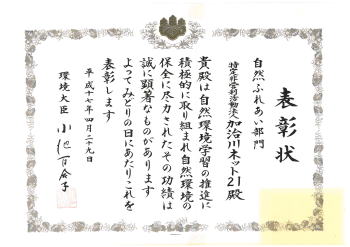 表彰状
自然ふれあい部門
特定非営利活動法人加治川ネット21殿
貴殿は自然環境学習の推進に
積極的に取り組まれ自然環境の
保全に尽力されたその功績は
誠に顕著なものがあります
よってみどりの日にあたりこれを
表彰します
平成十七年四月二十九日
環境大臣 小池百合子